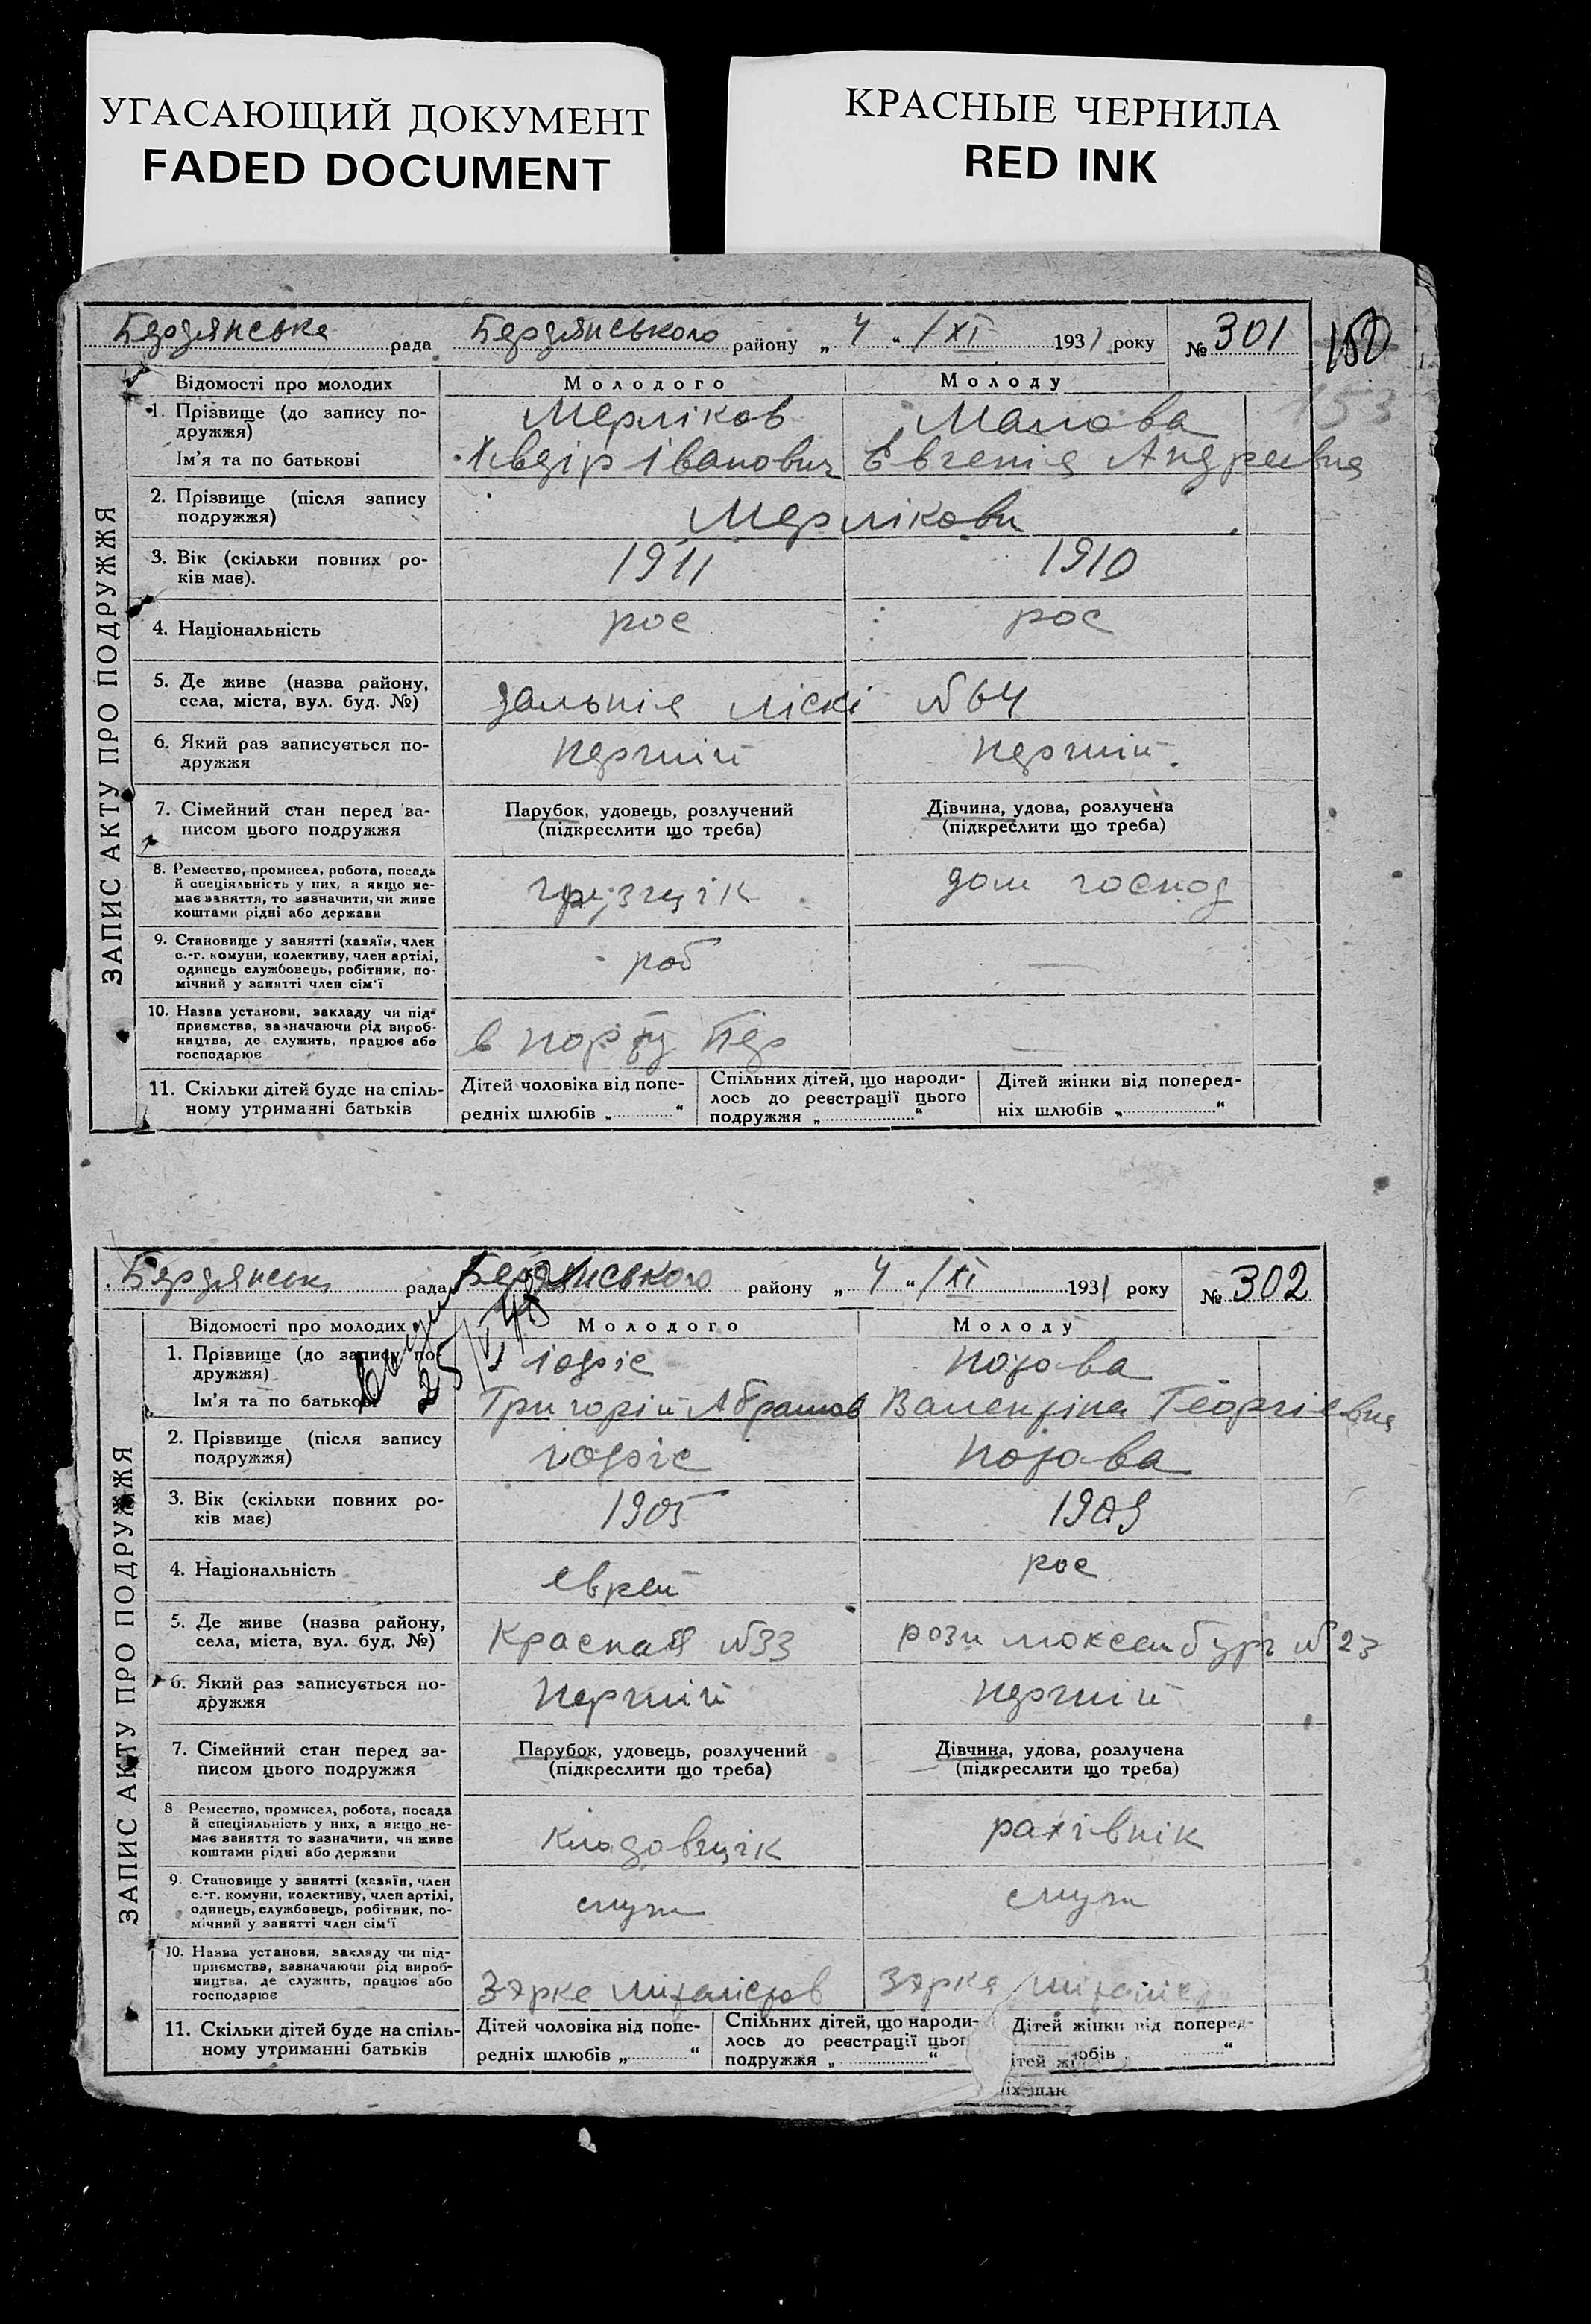 УГАСАЮЩИЙ ДОКУМЕНТ
FADED DOCUMENT
КРАСНЫЕ ЧЕРНИЛА
RED INK
Бердянська рада Бердянського району „ 4 “ /XI 1931 року № 301
150
153
ЗАПИС АКТУ ПРО ПОДРУЖЖЯ
Відомості про молодих Молодого Молоду
1. Прізвище (до запису по-
дружжя) Мерліков
Ім'я та по батькові Хведір Іванович Евгенія Андреевна
2. Прізвище (після запису
подружжя) Мерлікови
3. Вік (скільки повних ро-
ків має). 1911 1910
4. Національність рос рос
5. Де живе (назва району,
села, міста, вул. буд. №) дальнія ліскі №64
6. Який раз записується по-
дружжя першій першій
7. Сімейний стан перед за-
писом цього подружжя
Парубок, удовець, розлучений
(підкреслити що треба)
Дівчина, удова, розлучена
(підкреслити що треба)
8. Ремество, промисел, робота, посада
й спеціяльність у них, а якщо не-
має заняття, то зазначити, чи живе
коштами рідні або держави
грузчік дом господ
9. Становище у занятті (хазяїн, член
с.-г. комуни, колективу, член артілі,
одинець службовець, робітник, по-
мічний у занятті член сім'ї
роб —
10. Назва установи, закладу чи під-
приємства, зазначаючи рід вироб-
ництва, де служить, працює або
господарює
в порту Бер —
11. Скільки дітей буде на спіль-
ному утриманні батьків
Дітей чоловіка від попе-
редніх шлюбів „ “
Спільних дітей, що народи-
лось до реєстрації цього
подружжя „ “
Дітей жінки від поперед-
ніх шлюбів „ “
Бердянськ рада Бердянського району „ 4 “ /XI 1931 року № 302
ЗАПИС АКТУ ПРО ПОДРУЖЖЯ
Відомості про молодих Молодого Молоду
1. Прізвище (до запису по-
дружжя)
Ім'я та по батькові Григорій Абрамов Валентіна Георгіевна
2. Прізвище (після запису
подружжя)
3. Вік (скільки повних ро-
ків має) 1905 1909
4. Національність еврей рос
5. Де живе (назва району,
села, міста, вул. буд. №) Красная №33 рози люксембург №23
6. Який раз записується по-
дружжя першій першій
7. Сімейний стан перед за-
писом цього подружжя
Парубок, удовець, розлучений
(підкреслити що треба)
Дівчина, удова, розлучена
(підкреслити що треба)
8 Ремество, промисел, робота, посада
й спеціяльність у них, а якщо не-
має заняття то зазначити, чи живе
коштами рідні або держави
кладовщік рахівнік
9. Становище у занятті (хазяїн, член
с.-г. комуни, колективу, член артілі,
одинець, службовець, робітник, по-
мічний у занятті член сім'ї
служ служ
10. Назва установи, закладу чи під-
приємства, зазначаючи рід вироб-
ництва, де служить, працює або
господарює
11. Скільки дітей буде на спіль-
ному утриманні батьків
Дітей чоловіка від попе-
редніх шлюбів „ “
Спільних дітей, що народи-
лось до реєстрації цьог
подружжя „ “
Дітей жінки від поперед-
обів “
ітей жі
іх шлк